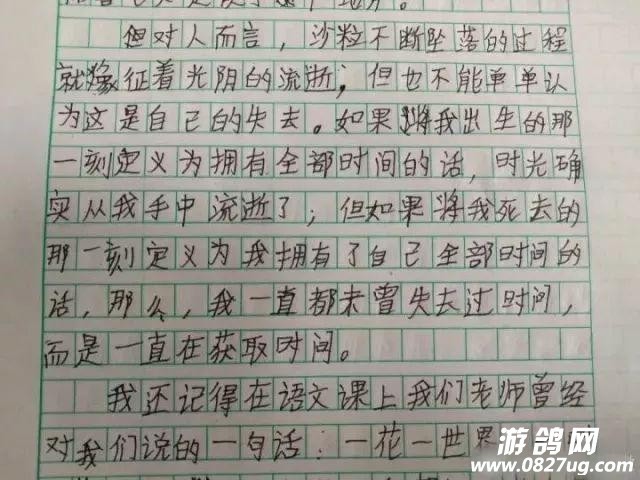 但对人而言，沙粒不断坠落的过程
就像征着光阴的流逝；但也不能单单认
为这是自己的失去。如果将我出生的那
一刻定义为拥有全部时间的话，时光确
实从我手中流逝了；但如果将我死去的
那一刻定义为我拥有了自己全部时间的
话，那么，我一直都未曾失去过时间，
而是一直在获取时间。
我还记得在语文课上我们老师曾经
对我们说的一句话：一花一世界
游鸽网
www.0827ug.com